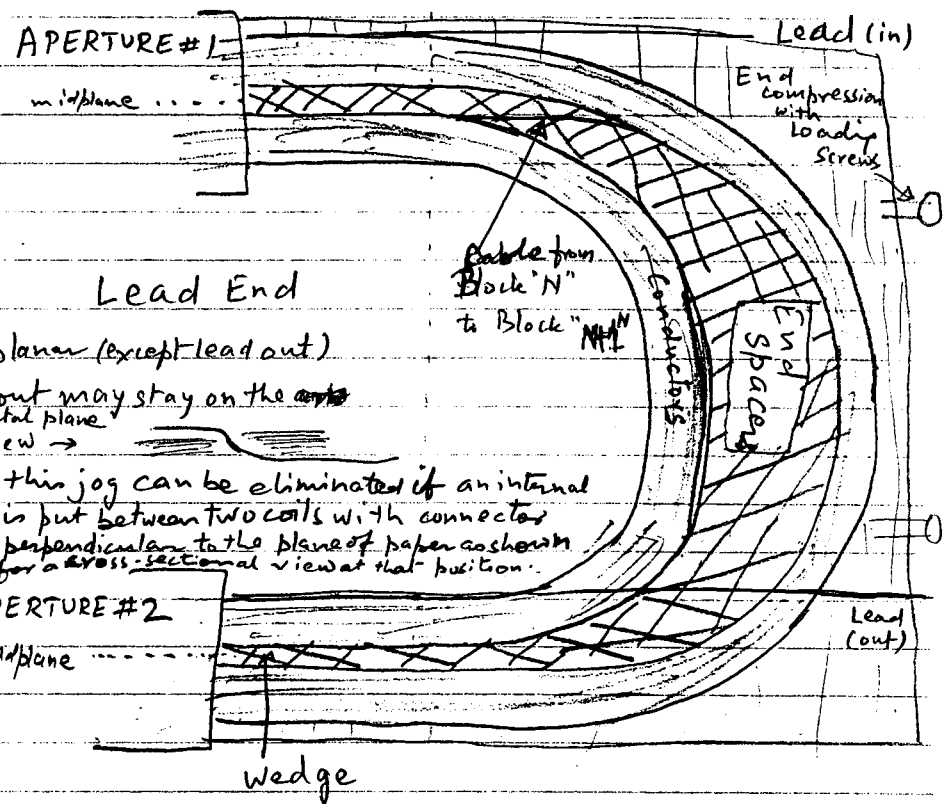 APERTURE #1
Lead (in)
midplane
End
compression
with
Loading
Screws
from
Block "N"
to Block "N+1"
Conductors
End
Spacers
Lead End
planar (except lead out)
out may stay on the
tal plane
ew →
this jog can be eliminated if an internal
is put between two coils with connector
perpendicular to the plane of paper as shown
for a cross-sectional view at that position.
PERTURE #2
Lead
(out)
idplane
Wedge